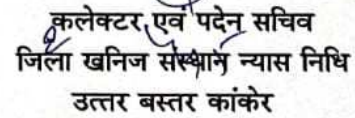 कलेक्टर एवं पदेन सचिव
जिला खनिज संस्थान न्यास निधि
उत्तर बस्तर कांकेर